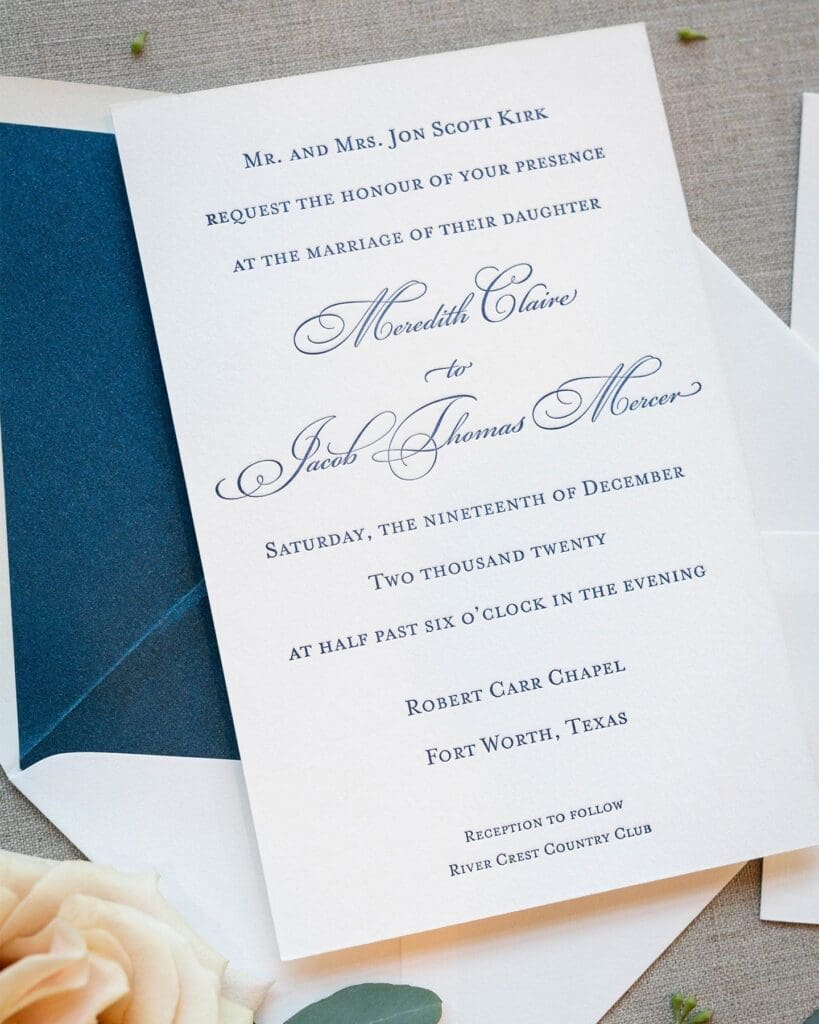 Mr. and Mrs. Jon Scott Kirk
request the honour of your presence
at the marriage of their daughter
Meredith Claire
to
Jacob Thomas Mercer
Saturday, the nineteenth of December
Two thousand twenty
at half past six o'clock in the evening
Robert Carr Chapel
Fort Worth, Texas
Reception to follow
River Crest Country Club